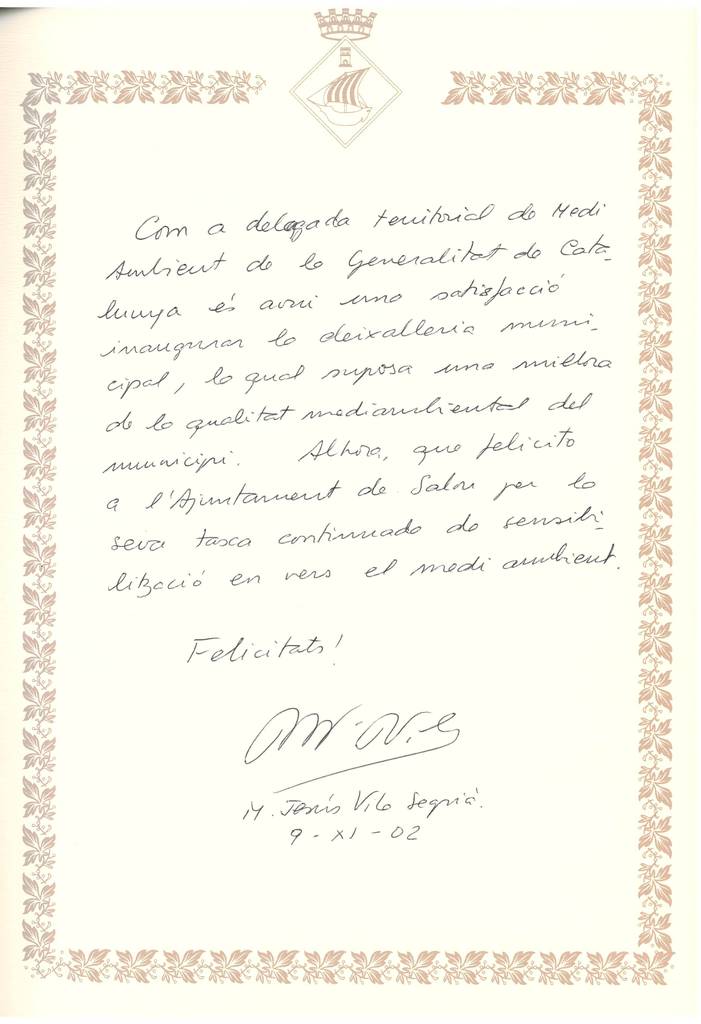 Com a delegada territorial de Medi
Ambient de la Generalitat de Cata-
lunya és avui una satisfacció
inaugurar la deixalleria muni-
cipal, la qual suposa una millora
de la qualitat mediambiental del
municipi. Alhora, que felicito
a l'Ajuntament de Salou per la
seva tasca continuada de sensibi-
lització en vers el medi ambient.
Felicitats!
M. Jesús Vila Segrià.
9-XI-02